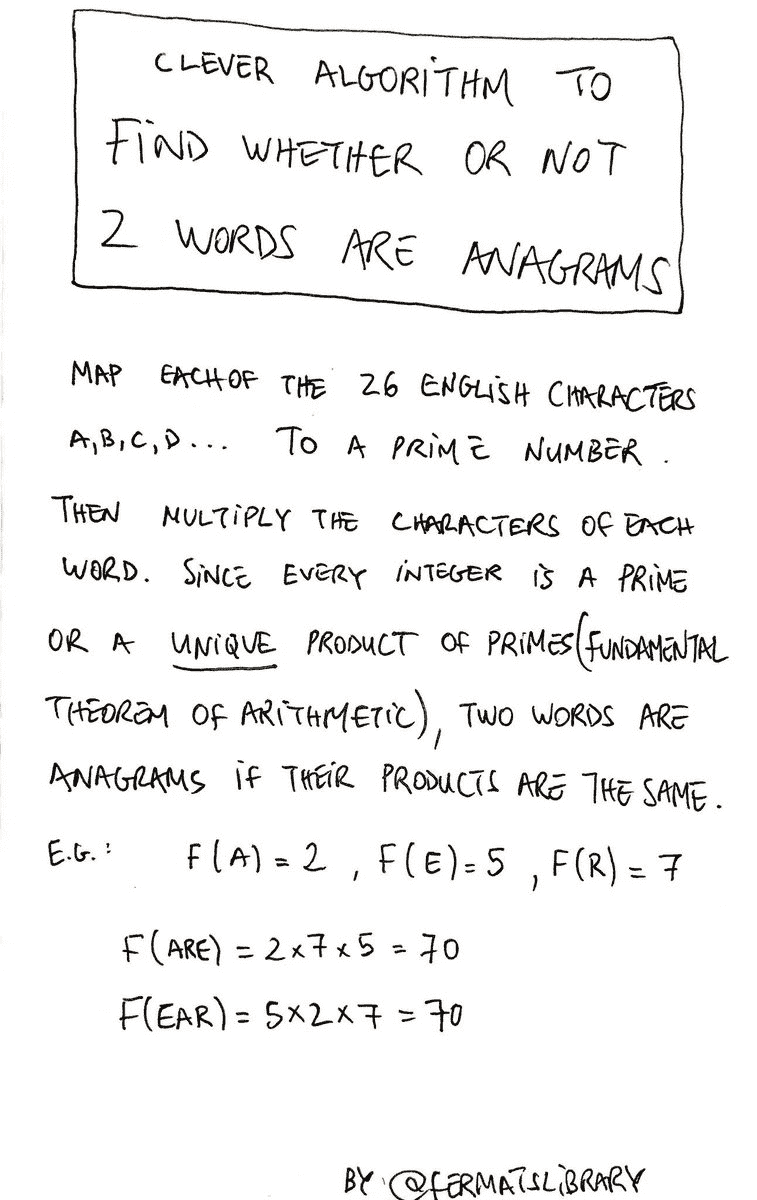 CLEVER ALGORiTHM TO
FiND WHETHER OR NOT
2 WORDS ARE ANAGRAMS
MAP EACH OF THE 26 ENGLiSH CHARACTERS
A,B,C,D... TO A PRiME NUMBER.
THEN MULTiPLY THE CHARACTERS OF EACH
WORD. SiNCE EVERY iNTEGER iS A PRiME
OR A UNiQUE PRODUCT OF PRiMES (FUNDAMENTAL
THEOREM OF ARiTHMETiC), TWO WORDS ARE
ANAGRAMS iF THEiR PRODUCTS ARE THE SAME.
E.G.: F(A) = 2 , F(E) = 5 , F(R) = 7
F(ARE) = 2 x 7 x 5 = 70
F(EAR) = 5 x 2 x 7 = 70
BY @FERMATSLiBRARY